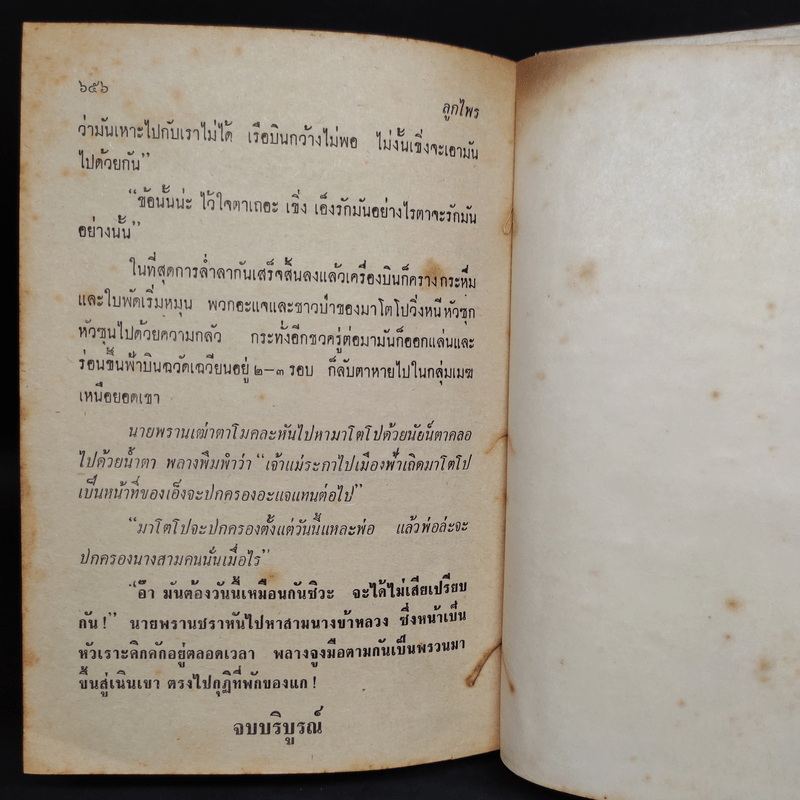 ๖๕๖
ลูกไพร
ว่ามันเหาะไปกับเราไม่ได้ เรือบินกว้างไม่พอ ไม่งั้นเซิ่งจะเอามัน
ไปด้วยกัน”
“ข้อนั้นน่ะ ไว้ใจตาเถอะ เซิ่ง เอ็งรักมันอย่างไรตาจะรักมัน
อย่างนั้น”
ในที่สุดการล่ำลากันเสร็จสิ้นลงแล้วเครื่องบินก็ครางกระหึ่ม
และใบพัดเริ่มหมุน พวกอะแจและชาวป่าของมาโตโปวิ่งหนีหัวซุก
หัวซุนไปด้วยความกลัว กระทั่งอีกชวครู่ต่อมามันก็ออกแล่นและ
ร่อนขึ้นฟ้าบินฉวัดเฉวียนอยู่ ๒–๓ รอบ ก็ลับตาหายไปในกลุ่มเมฆ
เหนือยอดเขา
นายพรานเฒ่าตาโมคละหันไปหามาโตโปด้วยนัยน์ตาคลอ
ไปด้วยน้ำตา พลางพึมพำว่า “เจ้าแม่ระกาไปเมืองฟ้าเถิดมาโตโป
เป็นหน้าที่ของเอ็งจะปกครองอะแจแทนต่อไป”
“มาโตโปจะปกครองตั้งแต่วันนี้แหละพ่อ แล้วพ่อล่ะจะ
ปกครองนางสามคนนั่นเมื่อไร”
“อ๊า มันต้องวันนี้เหมือนกันซิวะ จะได้ไม่เสียเปรียบ
กัน!” นายพรานชราหันไปหาสามนางข้าหลวง ซึ่งหน้าเป็น
หัวเราะคิกคักอยู่ตลอดเวลา พลางจูงมือตามกันเป็นพรวนมา
ขึ้นสู่เนินเขา ตรงไปกุฏิที่พักของแก!
จบบริบูรณ์